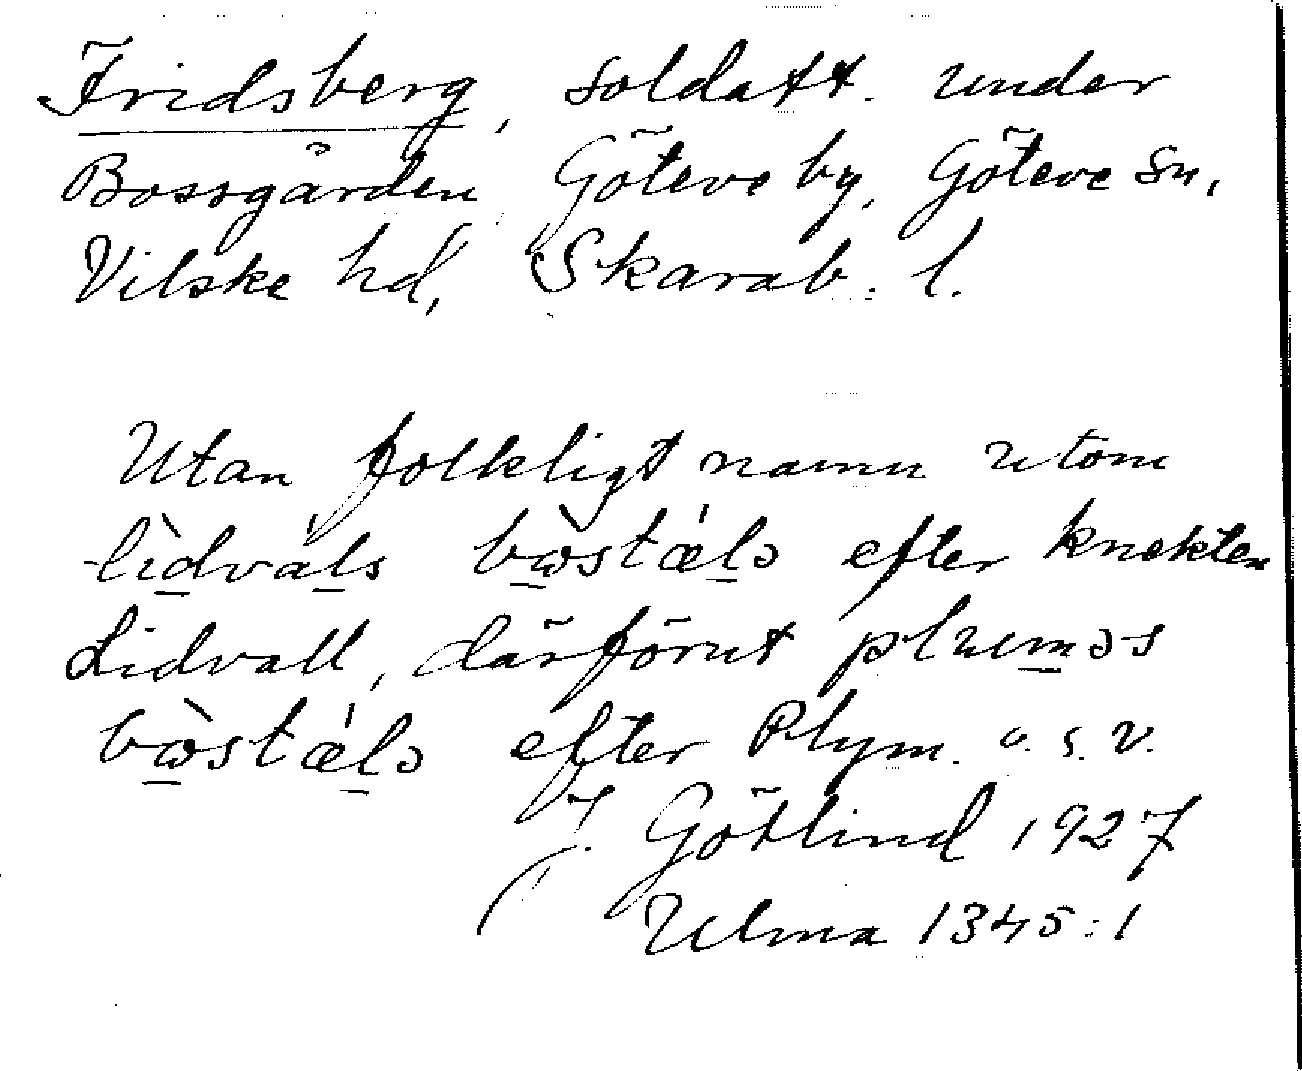 Fridsberg, soldatt. under
Bossgården Göteve by, Göteve sn,
Vilske hd, Skarab. l.
Utan folkligt namn utom
lìdváls bòstǽlə efter knekten
Lidvall, därförut plʉməs
bòstǽlə efter Plym. o. s. v.
J. Götlind 1927
Ulma 1345:1